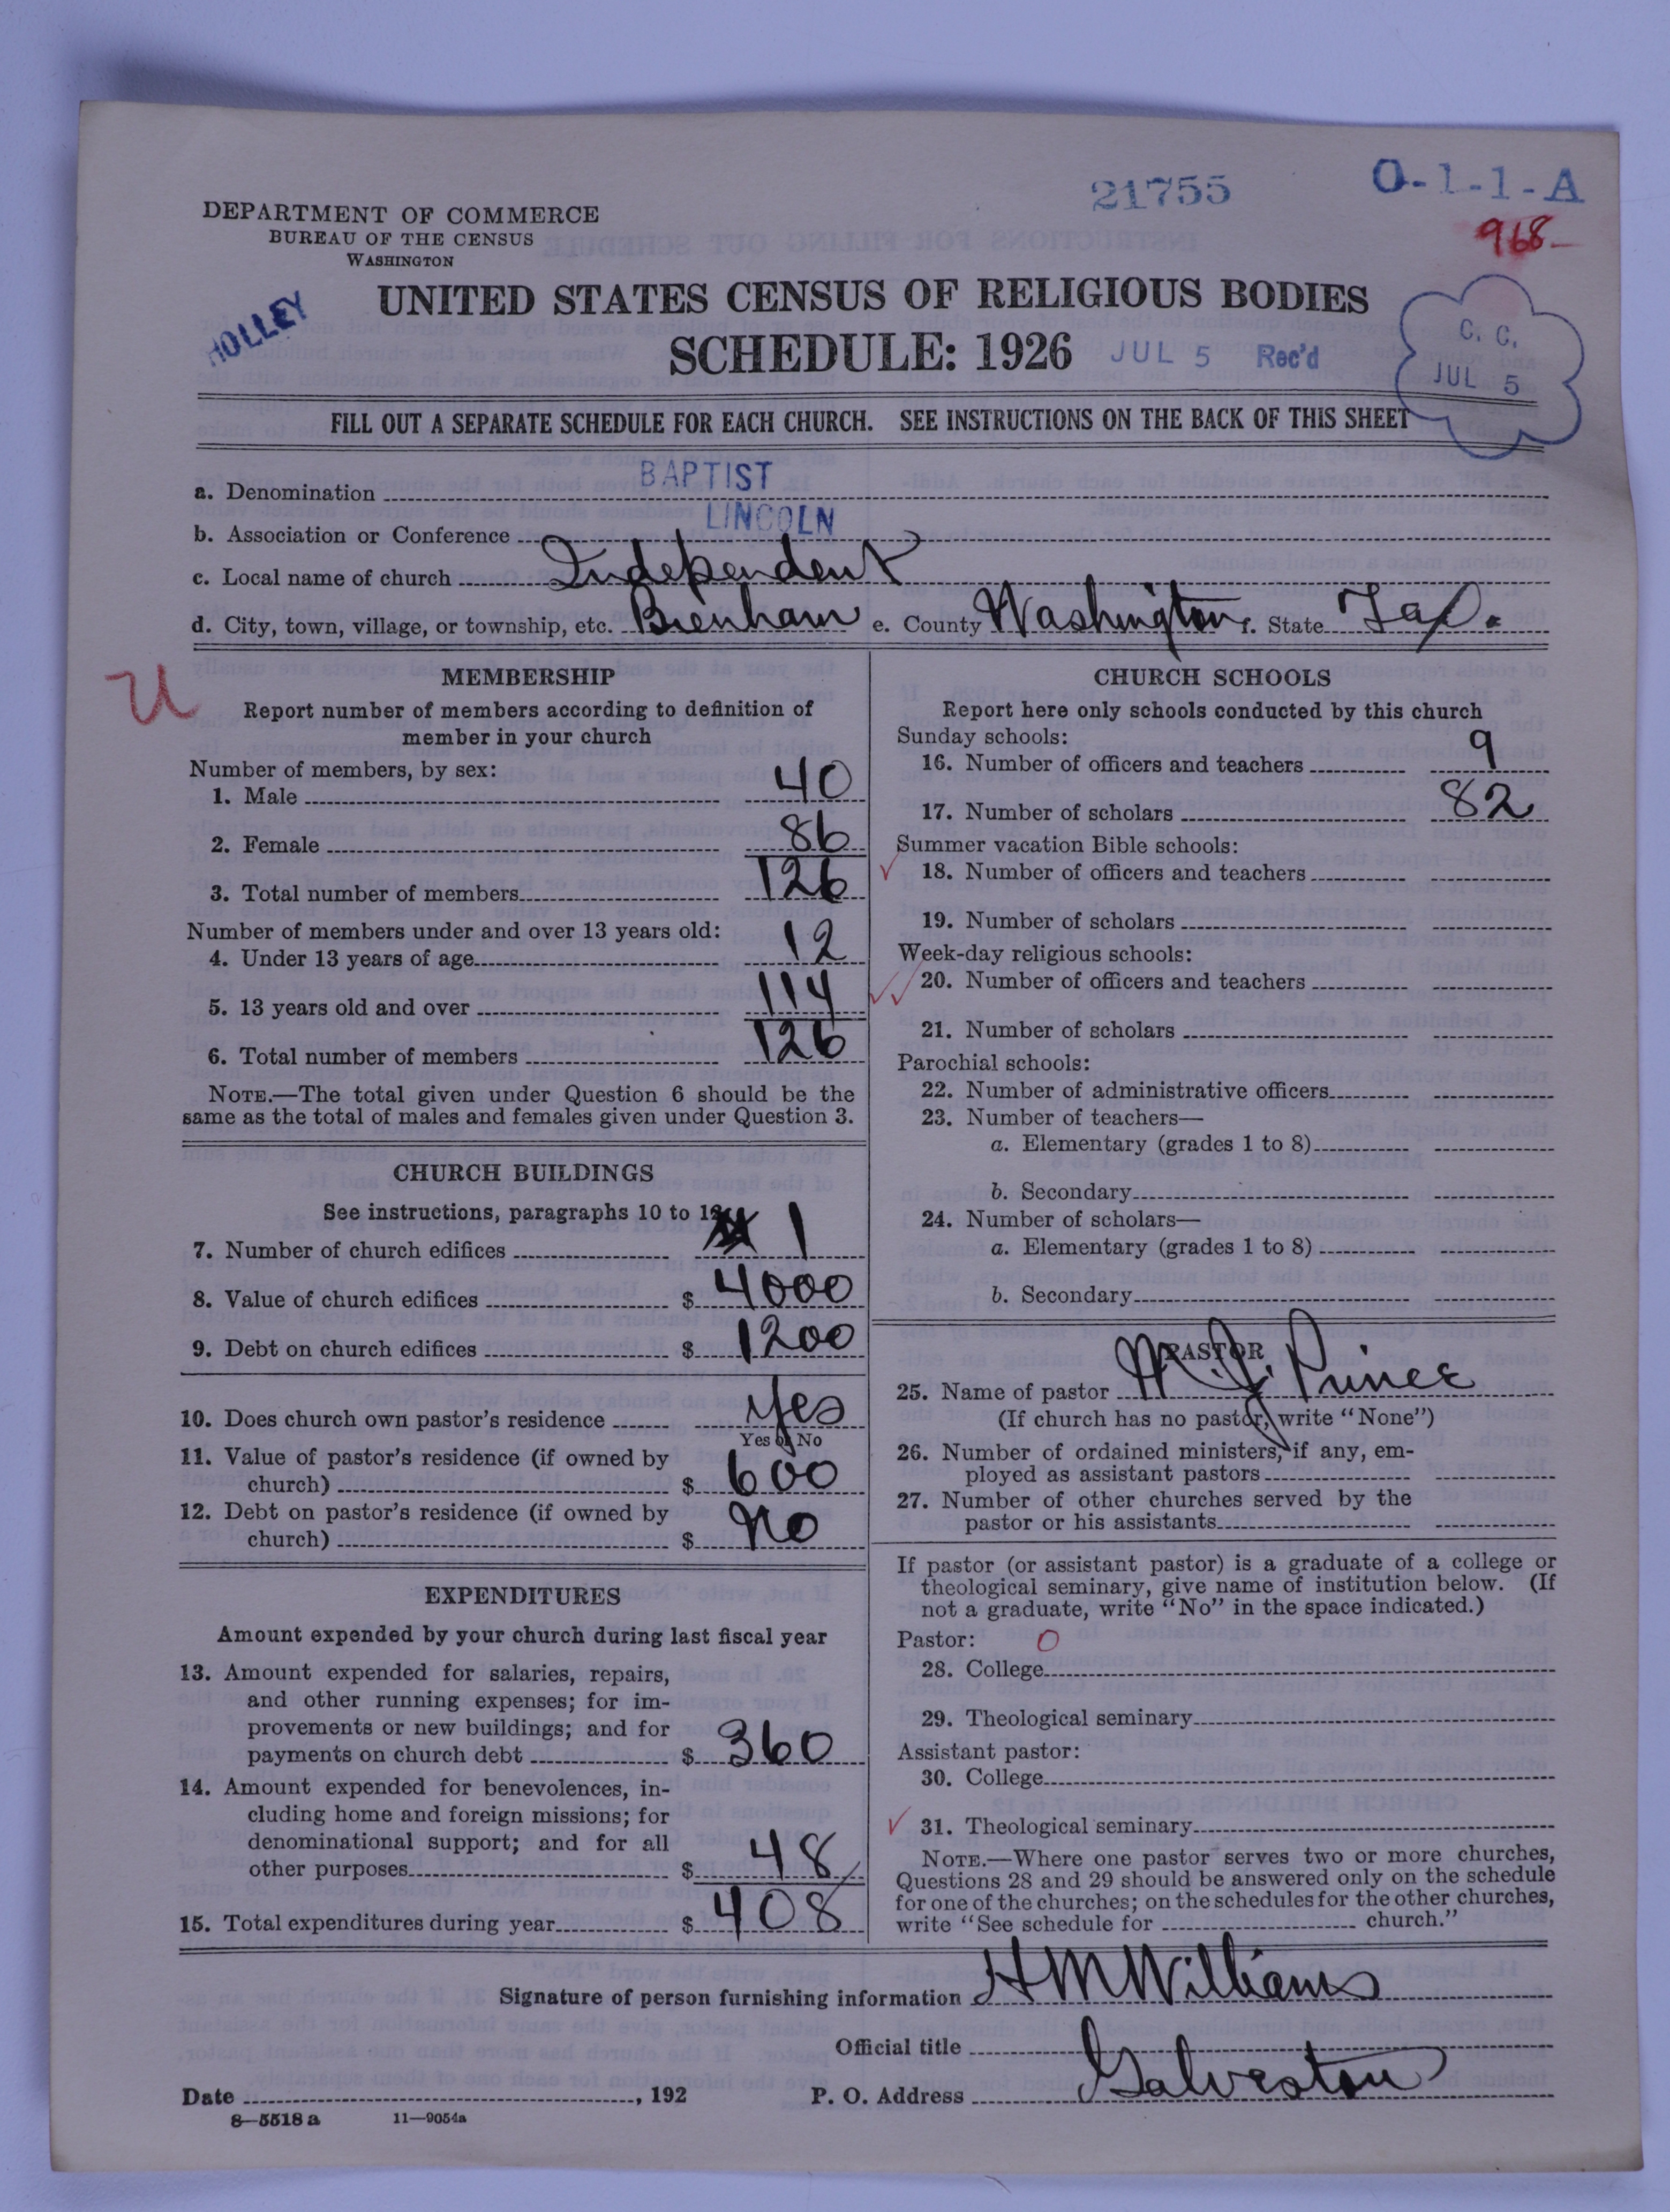 21755
O-1-1-A
968-
DEPARTMENT OF COMMERCE
BUREAU OF THE CENSUS
WASHINGTON
HOLLEY
UNITED STATES CENSUS OF RELIGIOUS BODIES
SCHEDULE: 1926 JUL 5 Rec'd
C. C.
JUL 5
FILL OUT A SEPARATE SCHEDULE FOR EACH CHURCH. SEE INSTRUCTIONS ON THE BACK OF THIS SHEET
a. Denomination BAPTIST
b. Association or Conference LINCOLN
c. Local name of church Independent
d. City, town, village, or township, etc. Brenham e. County Washington f. State Tex.
U
MEMBERSHIP
Report number of members according to definition of
member in your church
Number of members, by sex:
1. Male 40
2. Female 86
3. Total number of members 126
Number of members under and over 13 years old:
4. Under 13 years of age 12
5. 13 years old and over 114
6. Total number of members 126
NOTE.—The total given under Question 6 should be the
same as the total of males and females given under Question 3.
CHURCH BUILDINGS
See instructions, paragraphs 10 to 12
7. Number of church edifices 1
8. Value of church edifices $ 4000
9. Debt on church edifices $ 1200
10. Does church own pastor's residence Yes
Yes or No
11. Value of pastor's residence (if owned by
church) $ 600
12. Debt on pastor's residence (if owned by
church) $ No
EXPENDITURES
Amount expended by your church during last fiscal year
13. Amount expended for salaries, repairs,
and other running expenses; for im-
provements or new buildings; and for
payments on church debt $ 360
14. Amount expended for benevolences, in-
cluding home and foreign missions; for
denominational support; and for all
other purposes $ 48
15. Total expenditures during year $ 408
CHURCH SCHOOLS
Report here only schools conducted by this church
Sunday schools:
16. Number of officers and teachers 9
17. Number of scholars 82
Summer vacation Bible schools:
18. Number of officers and teachers
19. Number of scholars
Week-day religious schools:
20. Number of officers and teachers
21. Number of scholars
Parochial schools:
22. Number of administrative officers
23. Number of teachers—
a. Elementary (grades 1 to 8)
b. Secondary
24. Number of scholars—
a. Elementary (grades 1 to 8)
b. Secondary
PASTOR
25. Name of pastor J. Prince
(If church has no pastor, write "None")
26. Number of ordained ministers, if any, em-
ployed as assistant pastors
27. Number of other churches served by the
pastor or his assistants
If pastor (or assistant pastor) is a graduate of a college or
theological seminary, give name of institution below. (If
not a graduate, write "No" in the space indicated.)
Pastor: 0
28. College
29. Theological seminary
Assistant pastor:
30. College
31. Theological seminary
NOTE.—Where one pastor serves two or more churches,
Questions 28 and 29 should be answered only on the schedule
for one of the churches; on the schedules for the other churches,
write "See schedule for church."
Signature of person furnishing information H M Williams
Official title
Date , 192 P. O. Address Galveston
8—5518 a 11—9054a